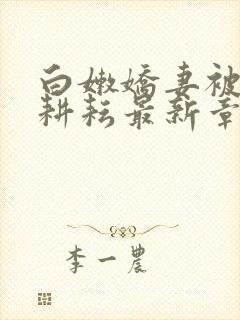 白嫩嬌妻被
耕耘最新章
李一農